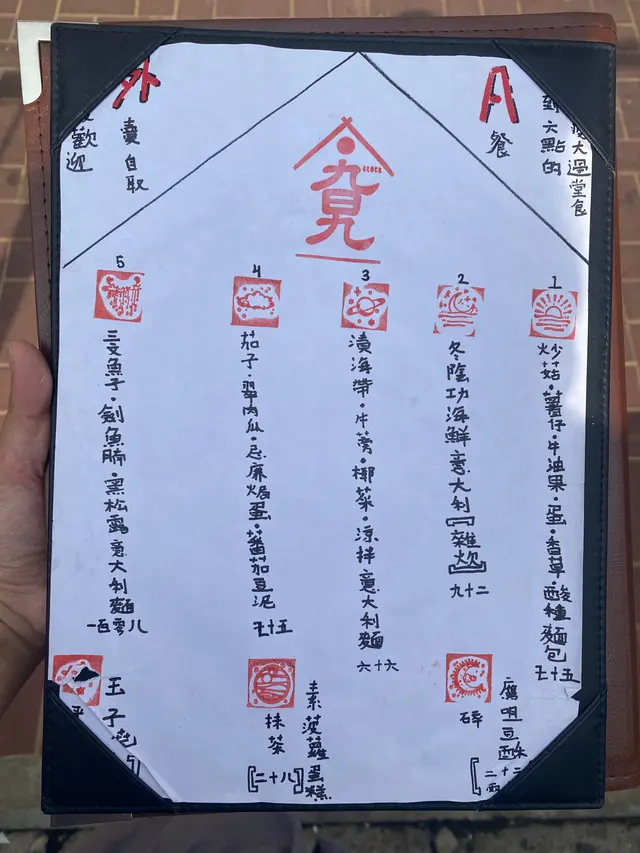 大過堂食
到六點的
A
餐
九見
外
賣自取
歡迎
1
炒菇·薯仔·牛油果·蛋·香草酸種麵包
七十五
2
冬陰功海鮮意大利〖雜炊〗
九十二
3
漬海帶·牛蒡·椰菜·涼拌意大利麵
六十六
4
茄子·翠肉瓜·忌廉焗蛋·蕃茄豆泥
七十五
5
三文魚子·劍魚腩·黑松露意大利麵
一百零八
碎
素菠蘿蛋糕
抹茶
〖二十八〗
玉子